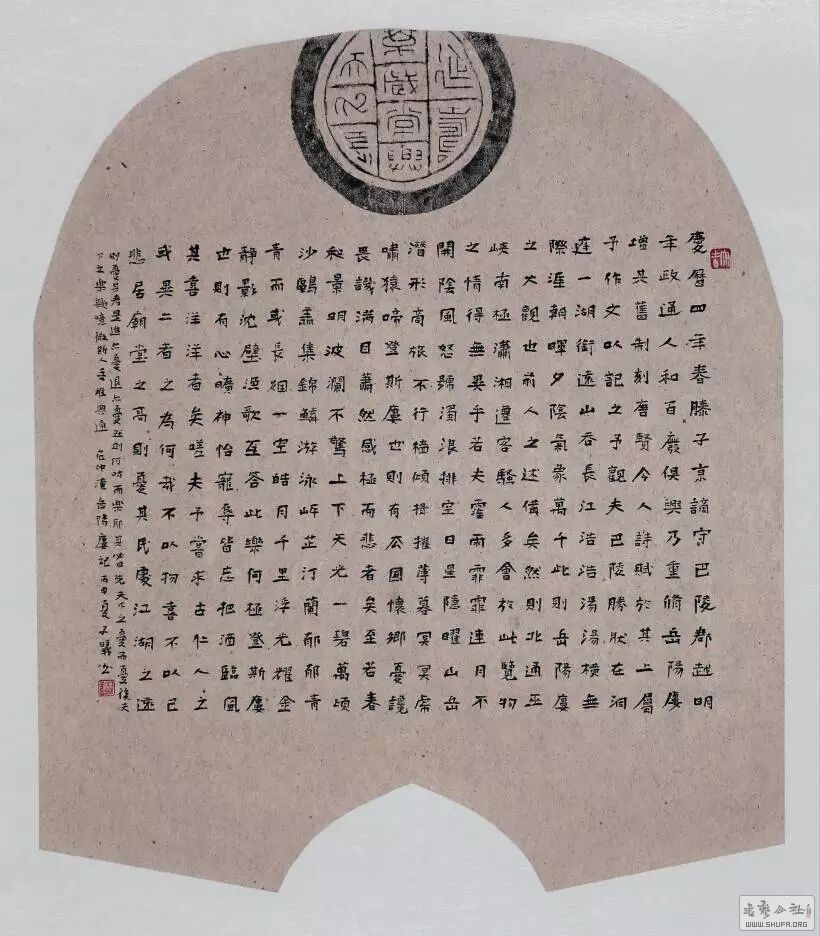 延壽萬歲常與天久長
慶曆四年春滕子京謫守巴陵郡越明
年政通人和百廢俱興乃重脩岳陽廔
增其舊制刻唐賢今人詩賦於其上屬
予作文以記之予觀夫巴陵勝狀在洞
庭一湖銜遠山吞長江浩浩湯湯橫無
際涯朝暉夕陰氣象萬千此則岳陽廔
之大觀也前人之述備矣然則北通巫
峽南極瀟湘遷客騷人多會於此覽物
之情得無異乎若夫霪雨霏霏連月不
開陰風怒號濁浪排空日星隱曜山岳
潛形商旅不行檣傾楫摧薄暮冥冥虎
嘯猿啼登斯廔也則有去國懷鄉憂讒
畏譏滿目蕭然感極而悲者矣至若春
和景明波瀾不驚上下天光一碧萬頃
沙鷗翔集錦鱗游泳岸芷汀蘭郁郁青
青而或長煙一空皓月千里浮光耀金
靜影沈璧漁歌互答此樂何極登斯廔
也則有心曠神怡寵辱皆忘把酒臨風
其喜洋洋者矣嗟夫予嘗求古仁人之
或異二者之為何哉不以物喜不以己
悲居廟堂之高則憂其民處江湖之遠
則憂其君是進亦憂退亦憂然則何時而樂耶其必曰先天下之憂而憂後天
下之樂歟噫微斯人吾誰與歸 范仲淹岳陽廔記 丙申夏子
書藝公社
WWW.SHUFA.ORG